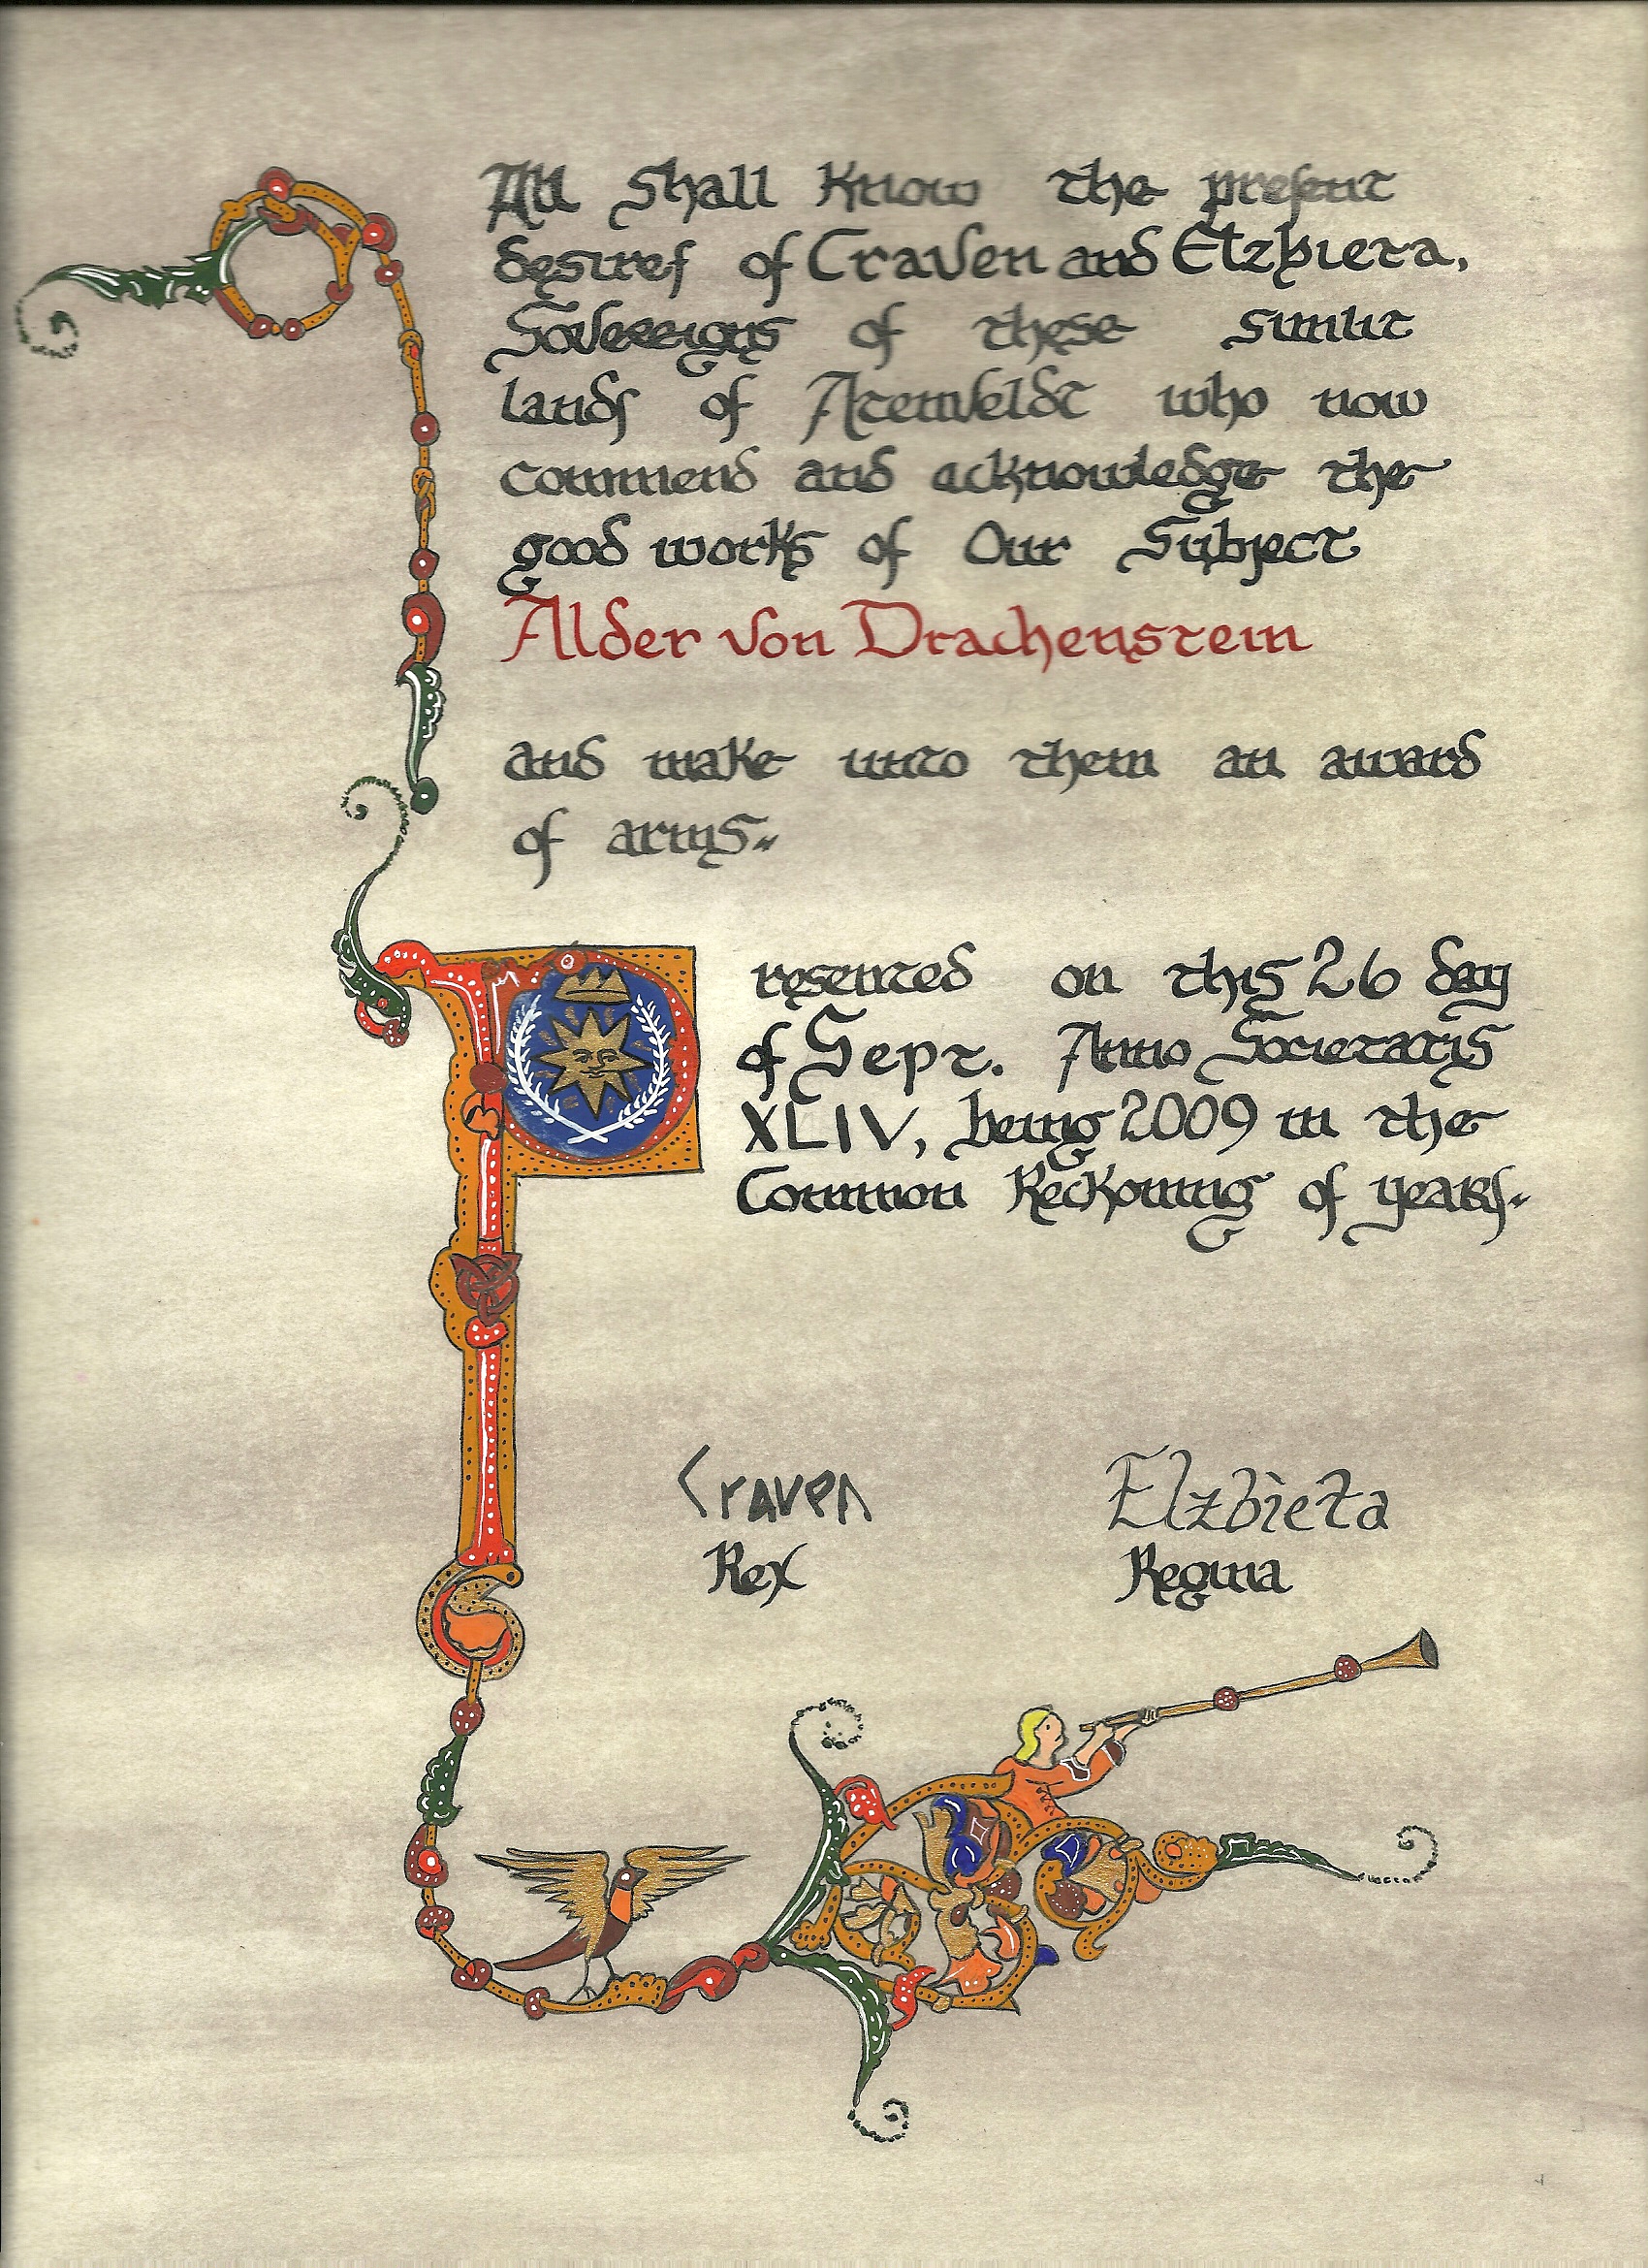 All Shall Know the present
desires of Craven and Elzbieta,
Sovereigns of these sunlit
lands of Atenveldt who now
commend and acknowledge the
good works of Our Subject
Alder Von Drachenstein
and make unto them an award
of arms.
Presented on this 26 day
of Sept. Anno Societatis
XLIV, being 2009 in the
Common Reckoning of years.
Craven Elzbieta
Rex Regina